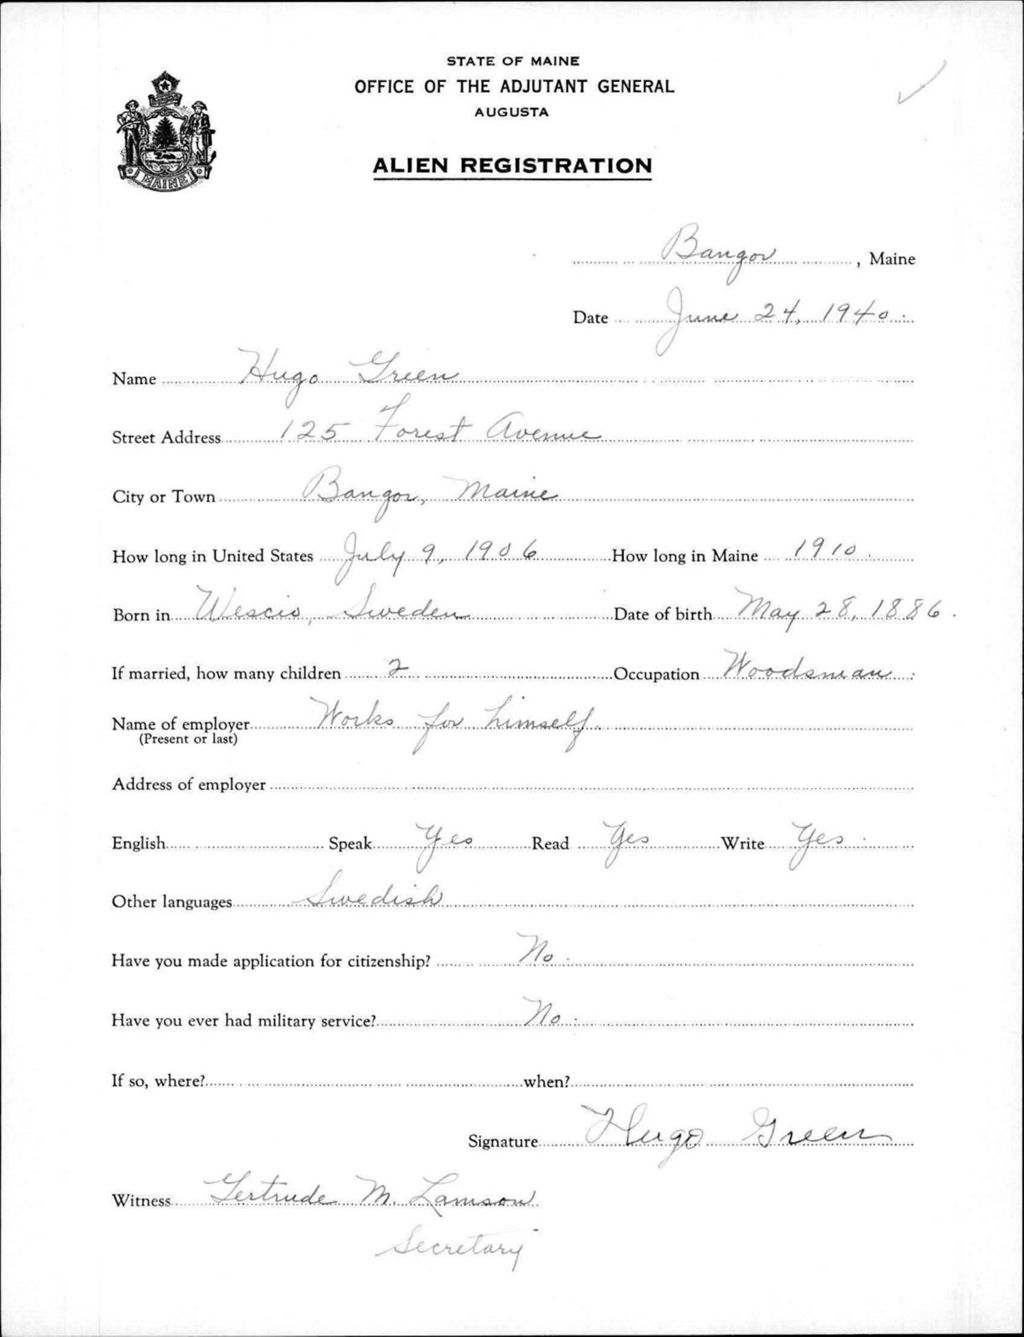 STATE OF MAINE
OFFICE OF THE ADJUTANT GENERAL
AUGUSTA
MAINE
ALIEN REGISTRATION
Bangor, Maine
Date June 24, 1940.
Name Hugo Green
Street Address 125 Forest Avenue
City or Town Bangor, Maine
How long in United States July 9, 1906 How long in Maine 1910.
Born in Wescio, Sweden Date of birth May 28, 1886.
If married, how many children 2 Occupation Woodsman.
Name of employer Works for himself.
(Present or last)
Address of employer
English Speak Yes Read Yes Write Yes.
Other languages Swedish
Have you made application for citizenship? No.
Have you ever had military service? No.
If so, where? when?
Signature Hugo Green
Witness Gertrude M. Lamson
Secretary